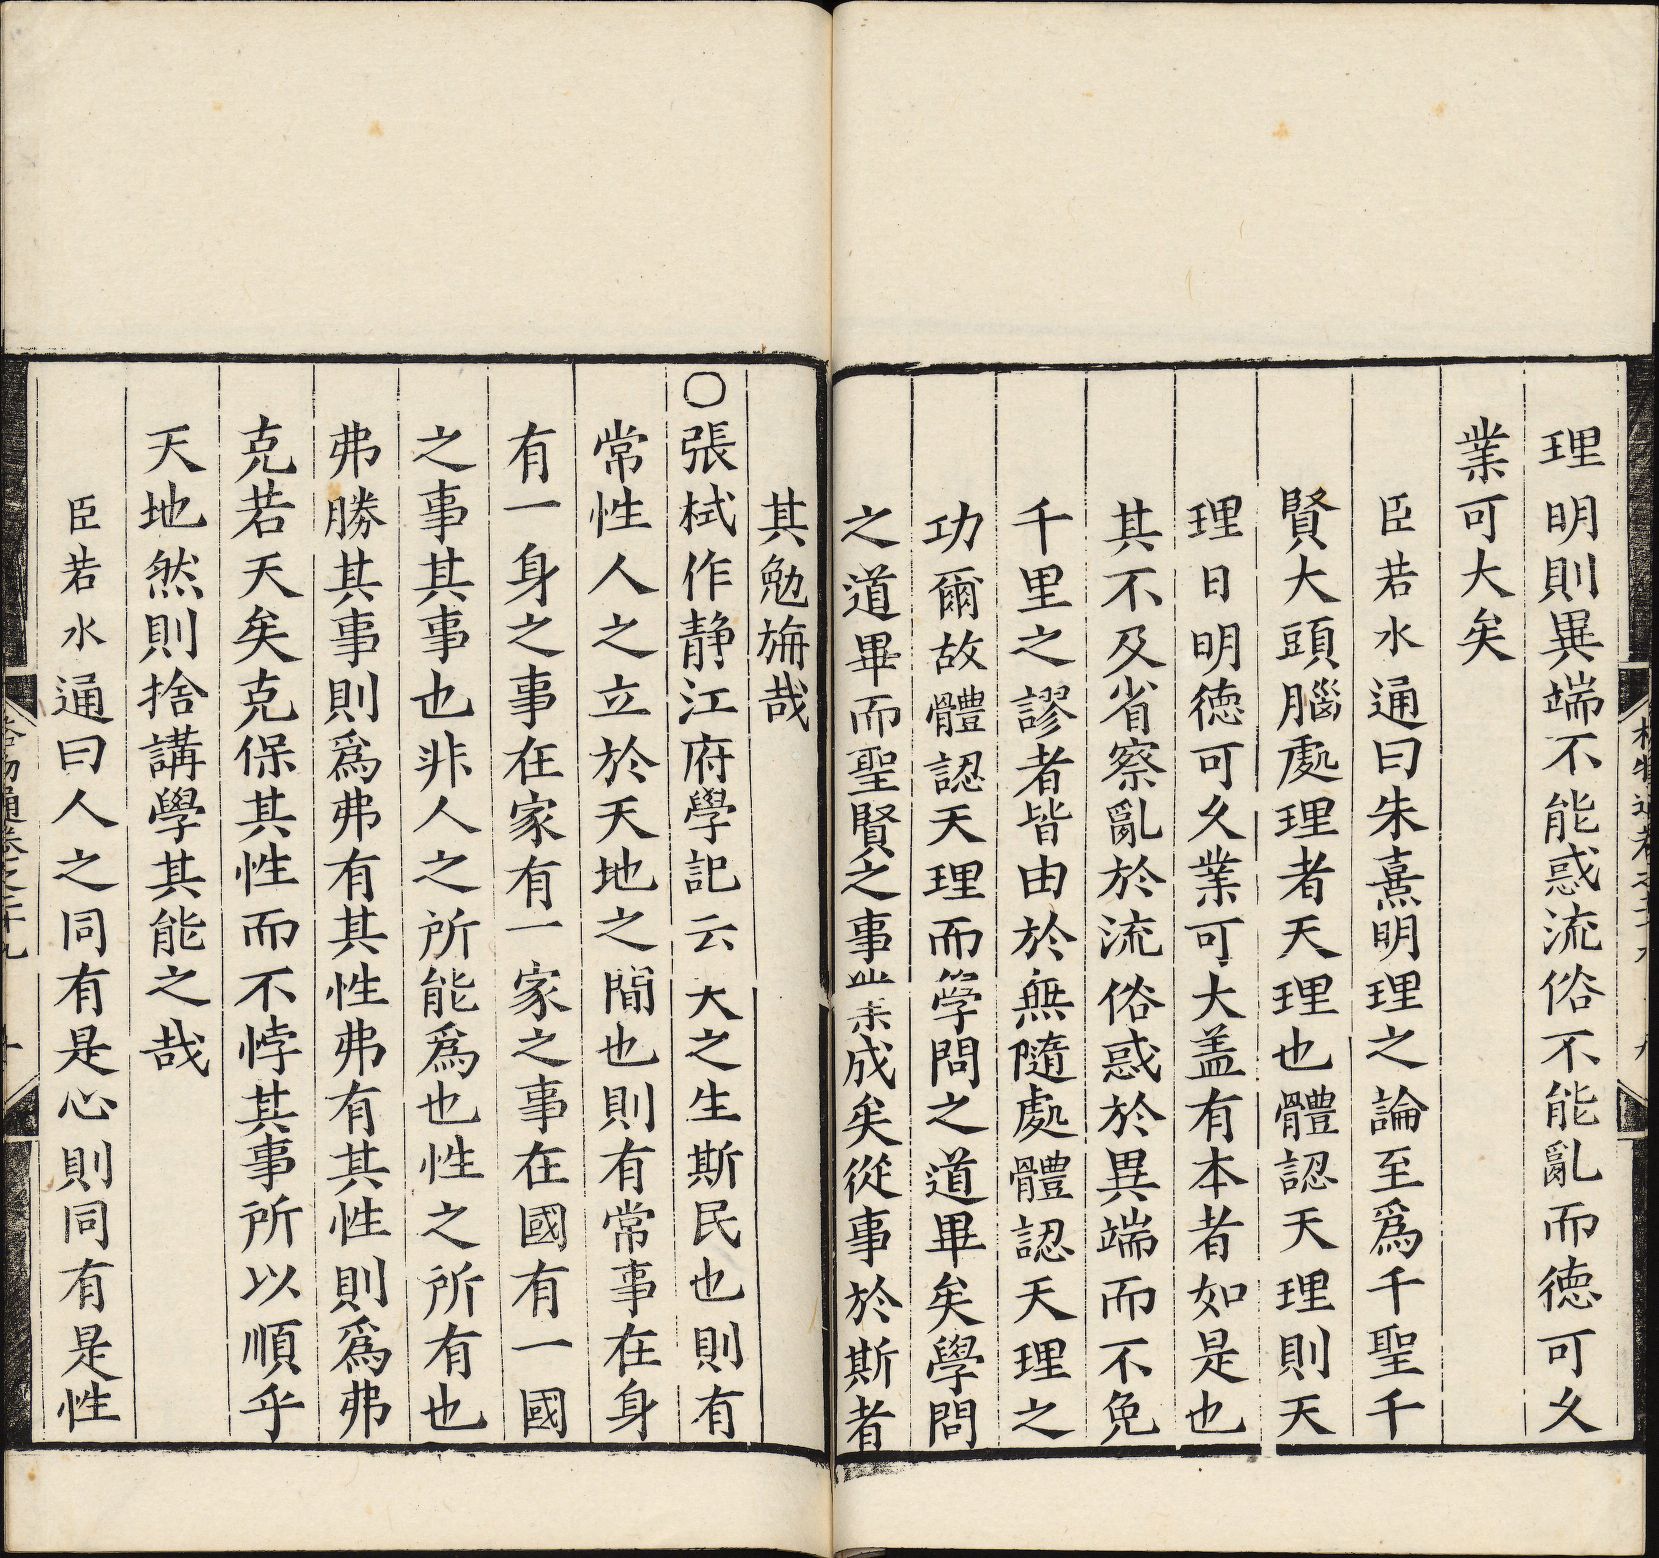 理明則異端不能惑流俗不能亂而德可久
業可大矣
臣若水通曰朱熹明理之論至爲千聖千
賢大頭腦處理者天理也體認天理則天
理日明德可久業可大盖有本者如是也
其不及省察亂於流俗惑於異端而不免
千里之謬者皆由於無隨處體認天理之
功爾故體認天理而學問之道畢矣學問
之道畢而聖賢之事業成矣從事於斯者
其勉旃哉
○張栻作静江府學記云大之生斯民也則有
常性人之立於天地之間也則有常事在身
有一身之事在家有一家之事在國有一國
之事其事也非人之所能爲也性之所有也
弗勝其事則爲弗有其性弗有其性則爲弗
克若天矣克保其性而不悖其事所以順乎
天地然則捨講學其能之哉
臣若水通曰人之同有是心則同有是性